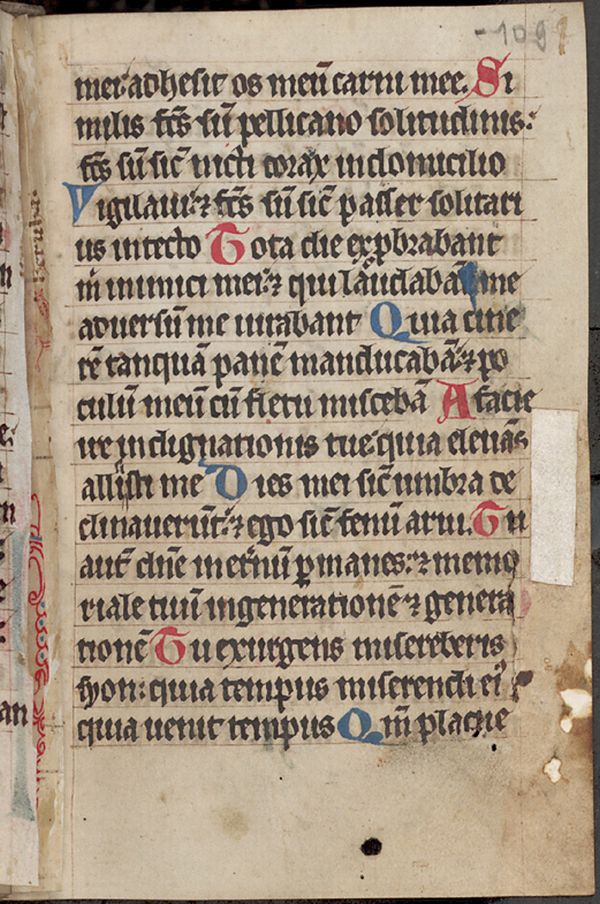 109
mei adhesit os meū carni mee. Si
milis fc̄s sū pellicano solitudinis:
fc̄s sū sic̄ nicti corax in domicilio
Vigilaui: ⁊ fc̄s sū sic̄ passer solitari
us in tecto Tota die exprobrabant
m̄ inimici mei: ⁊ qui laudabāt me
aduersū me iurabant Quia cine
rē tanquā panē manducabā: ⁊ po
culū meū cū fletu miscebā A facie
ire indignationis tue: quia eleuās
allisisti me Dies mei sic̄ umbra de
clinauerūt: ⁊ ego sic̄ fenū arui. Tu
aut̄ dn̄e in et̄nū ꝑmanes: ⁊ memo
riale tuū in generationē ⁊ genera
tionē Tu exurgens misereberis
syon: quia tempus miserendi ei
quia uenit tempus Qm̄ placue